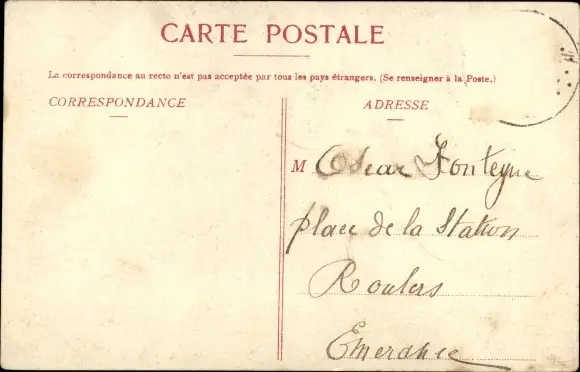 CARTE POSTALE
La correspondance au recto n'est pas acceptée par tous les pays étrangers. (Se renseigner à la Poste.)
CORRESPONDANCE
ADRESSE
M Oscar Fonteyne
place de la Station
Roulers